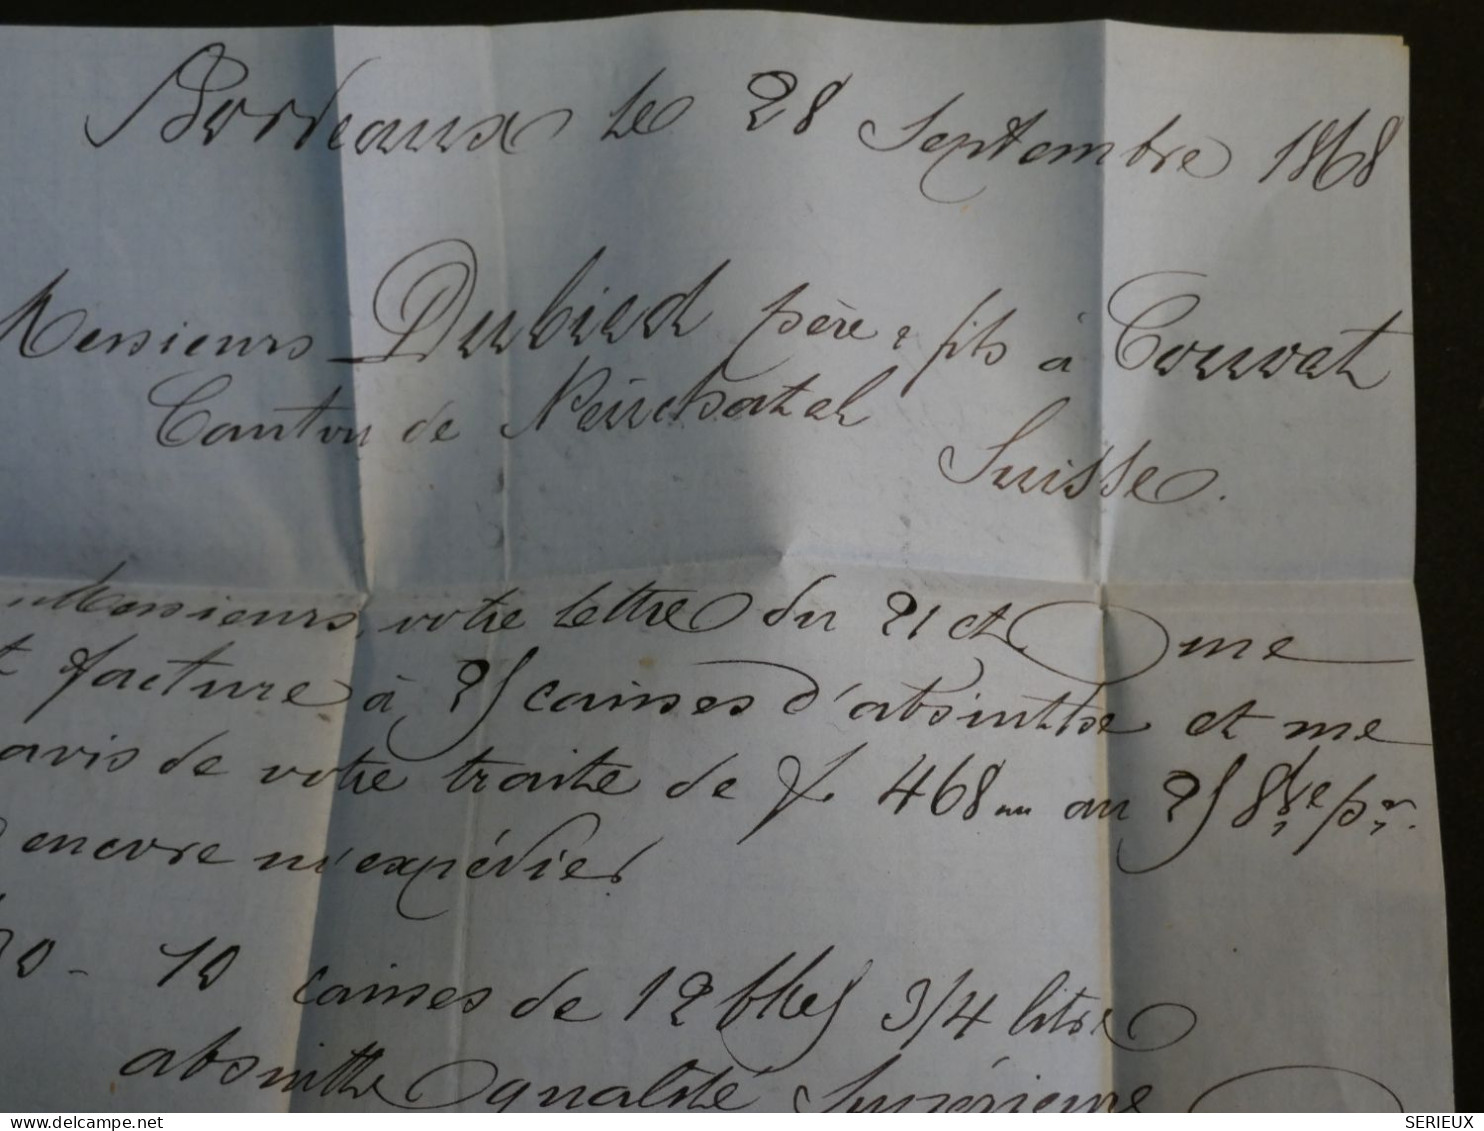 Bordeaux le 28 Septembre 1868
Messieurs Dubied père & fils à Couvat
Canton de Neuchatel
Suisse.
Messieurs, votre lettre du 21 ct me
facture à 25 caisses d'absinthe et me
avis de votre traite de f. 468 au 25 8bre pr.
encore m'expédier
10 caisses de 12 blles 3/4 litre
absinthe qualité Supérieure
delcampe.net
SERIEUX